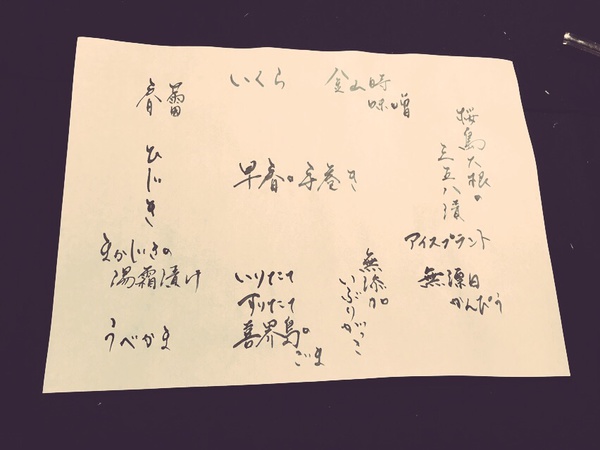 いくら
金山時
味噌
春
早春の手巻き
桜島大根の
三五八漬
ひじき
まかじきの
湯霜漬け
いりたて
すりたて
喜界島の
ごま
無添加
いぶりがっこ
アイスプラント
無漂白
かんぴょう
うべかま